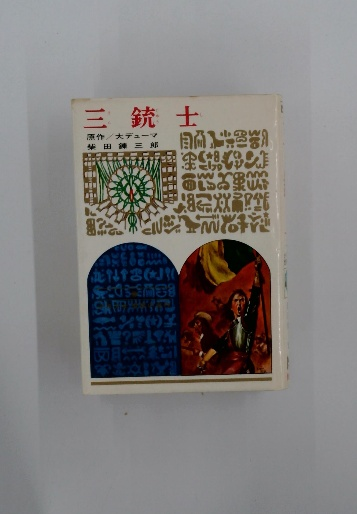 三銃士
原作／大デューマ
柴田錬三郎